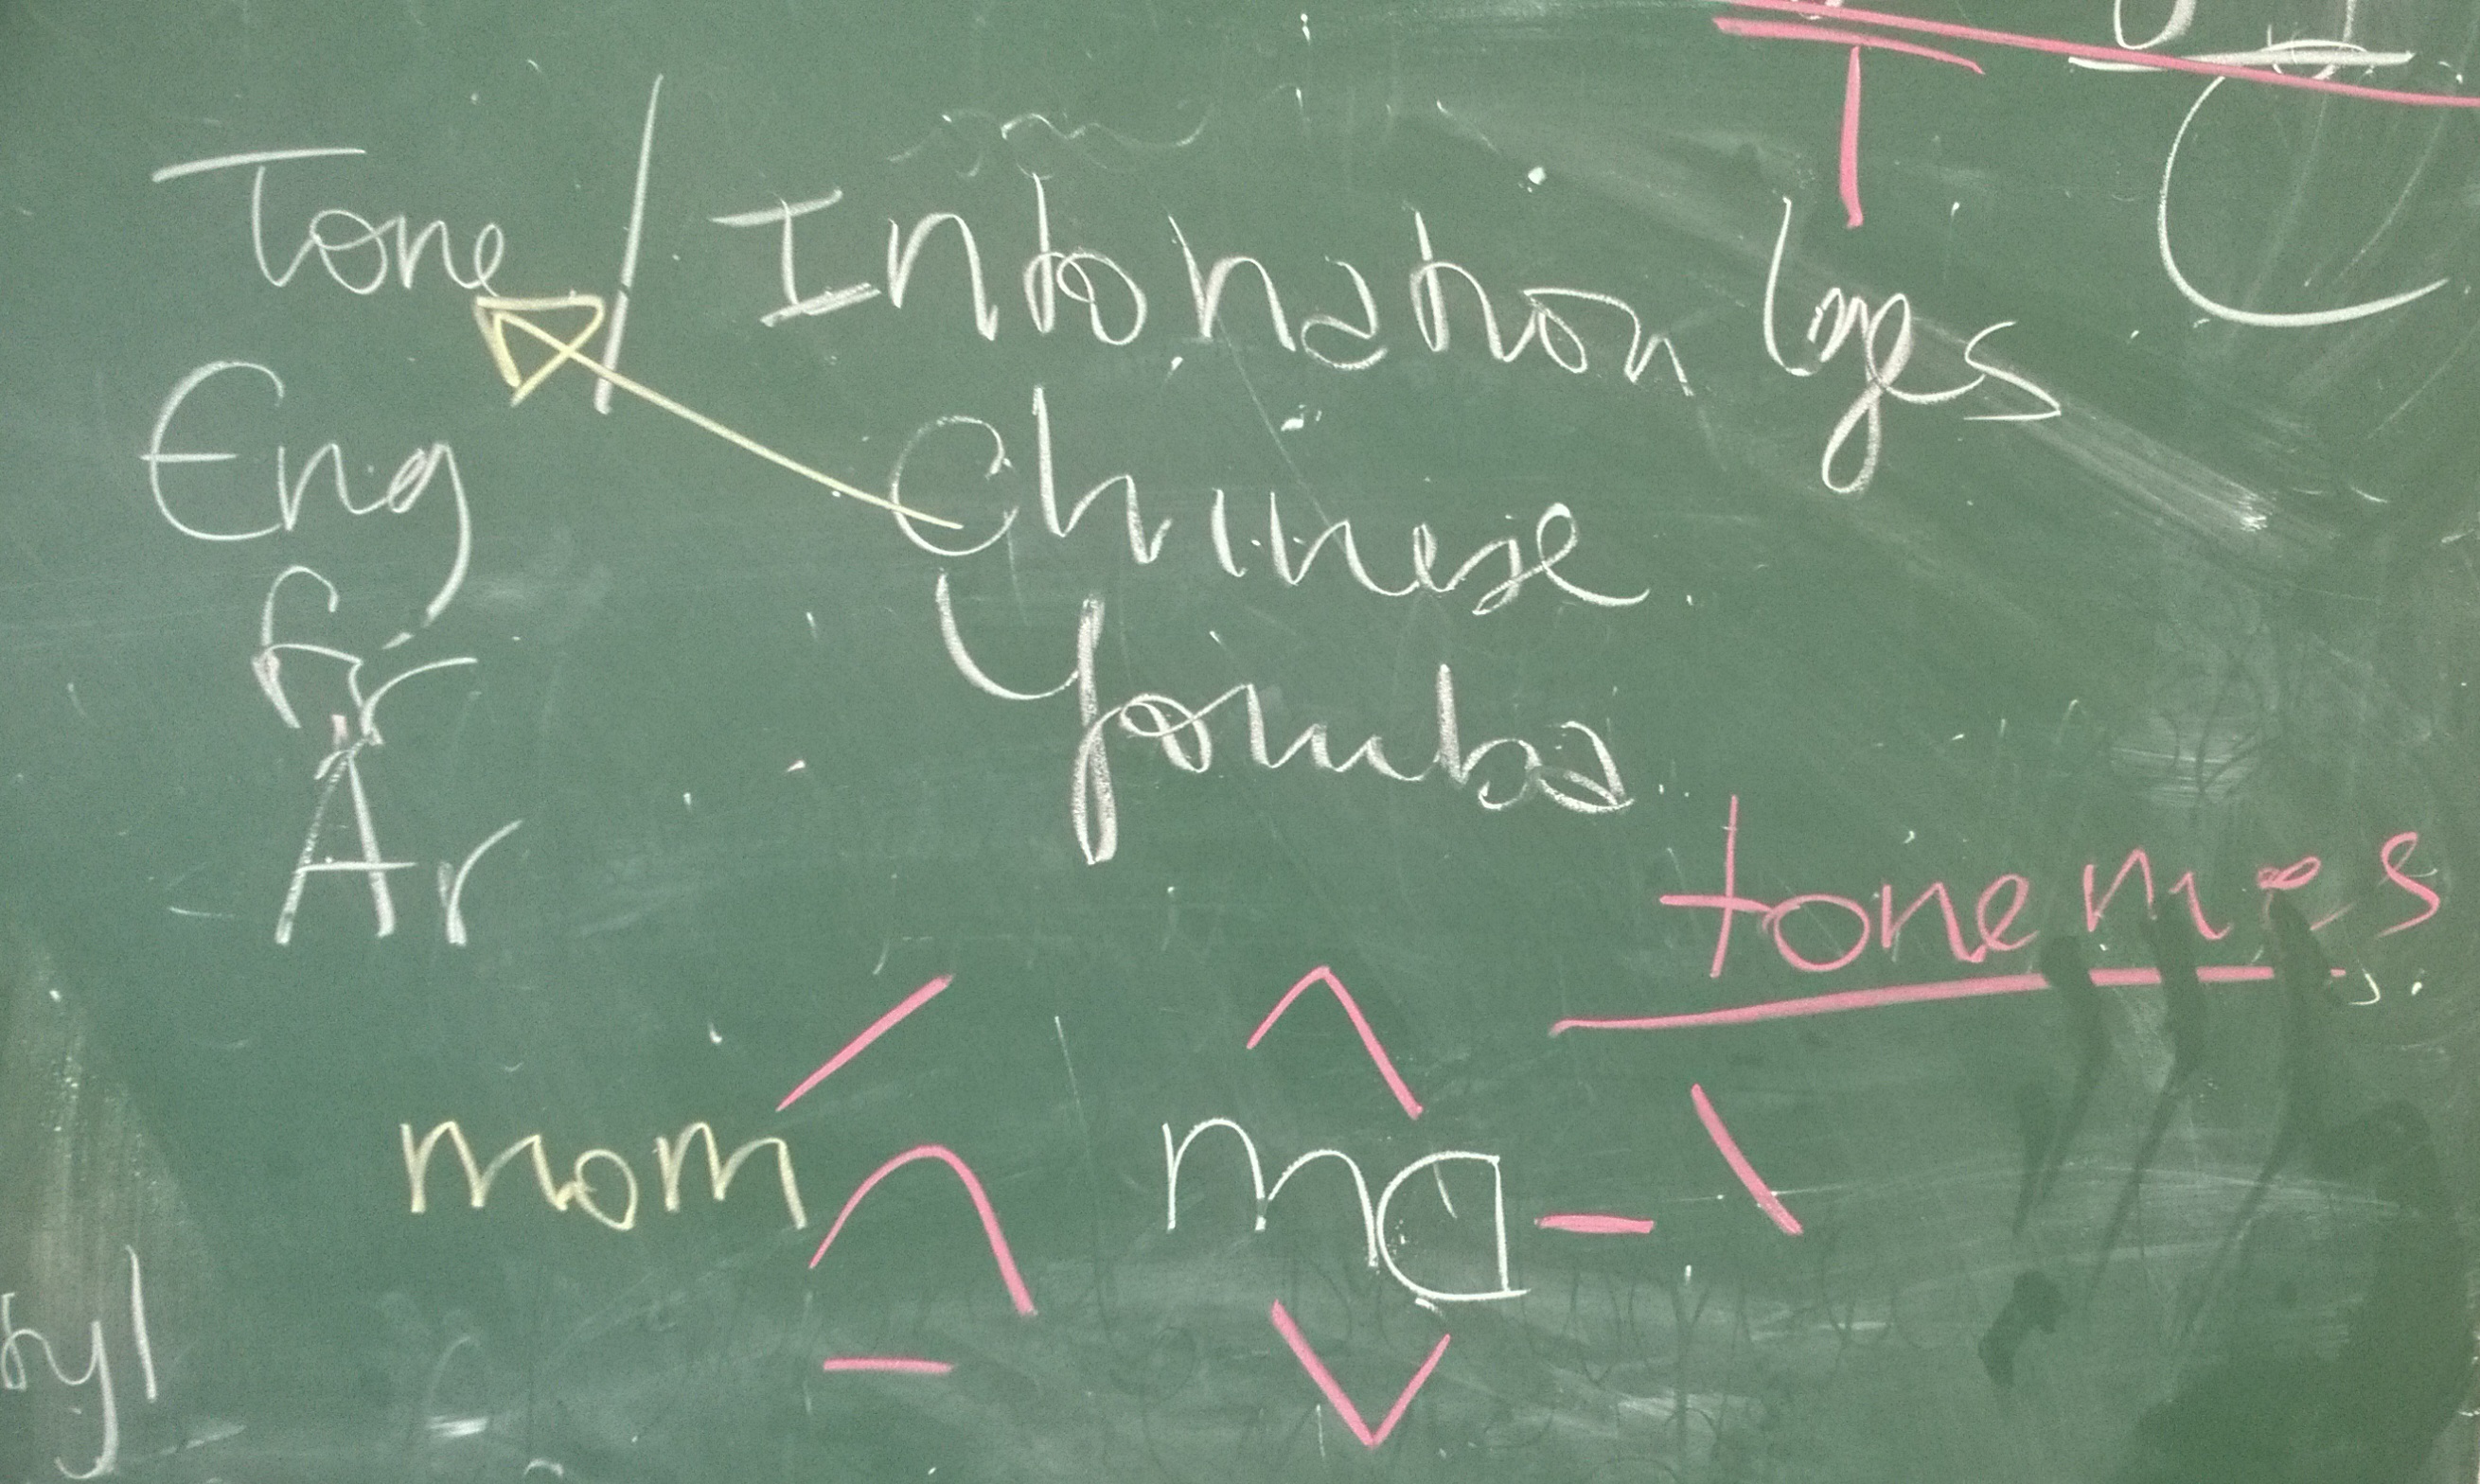 Tone / Intonation lges
Eng Chinese
Fr Yoruba
Ar
tonemes
mom ma